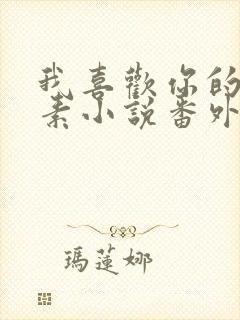 我喜歡你的
素小說番外
瑪蓮娜